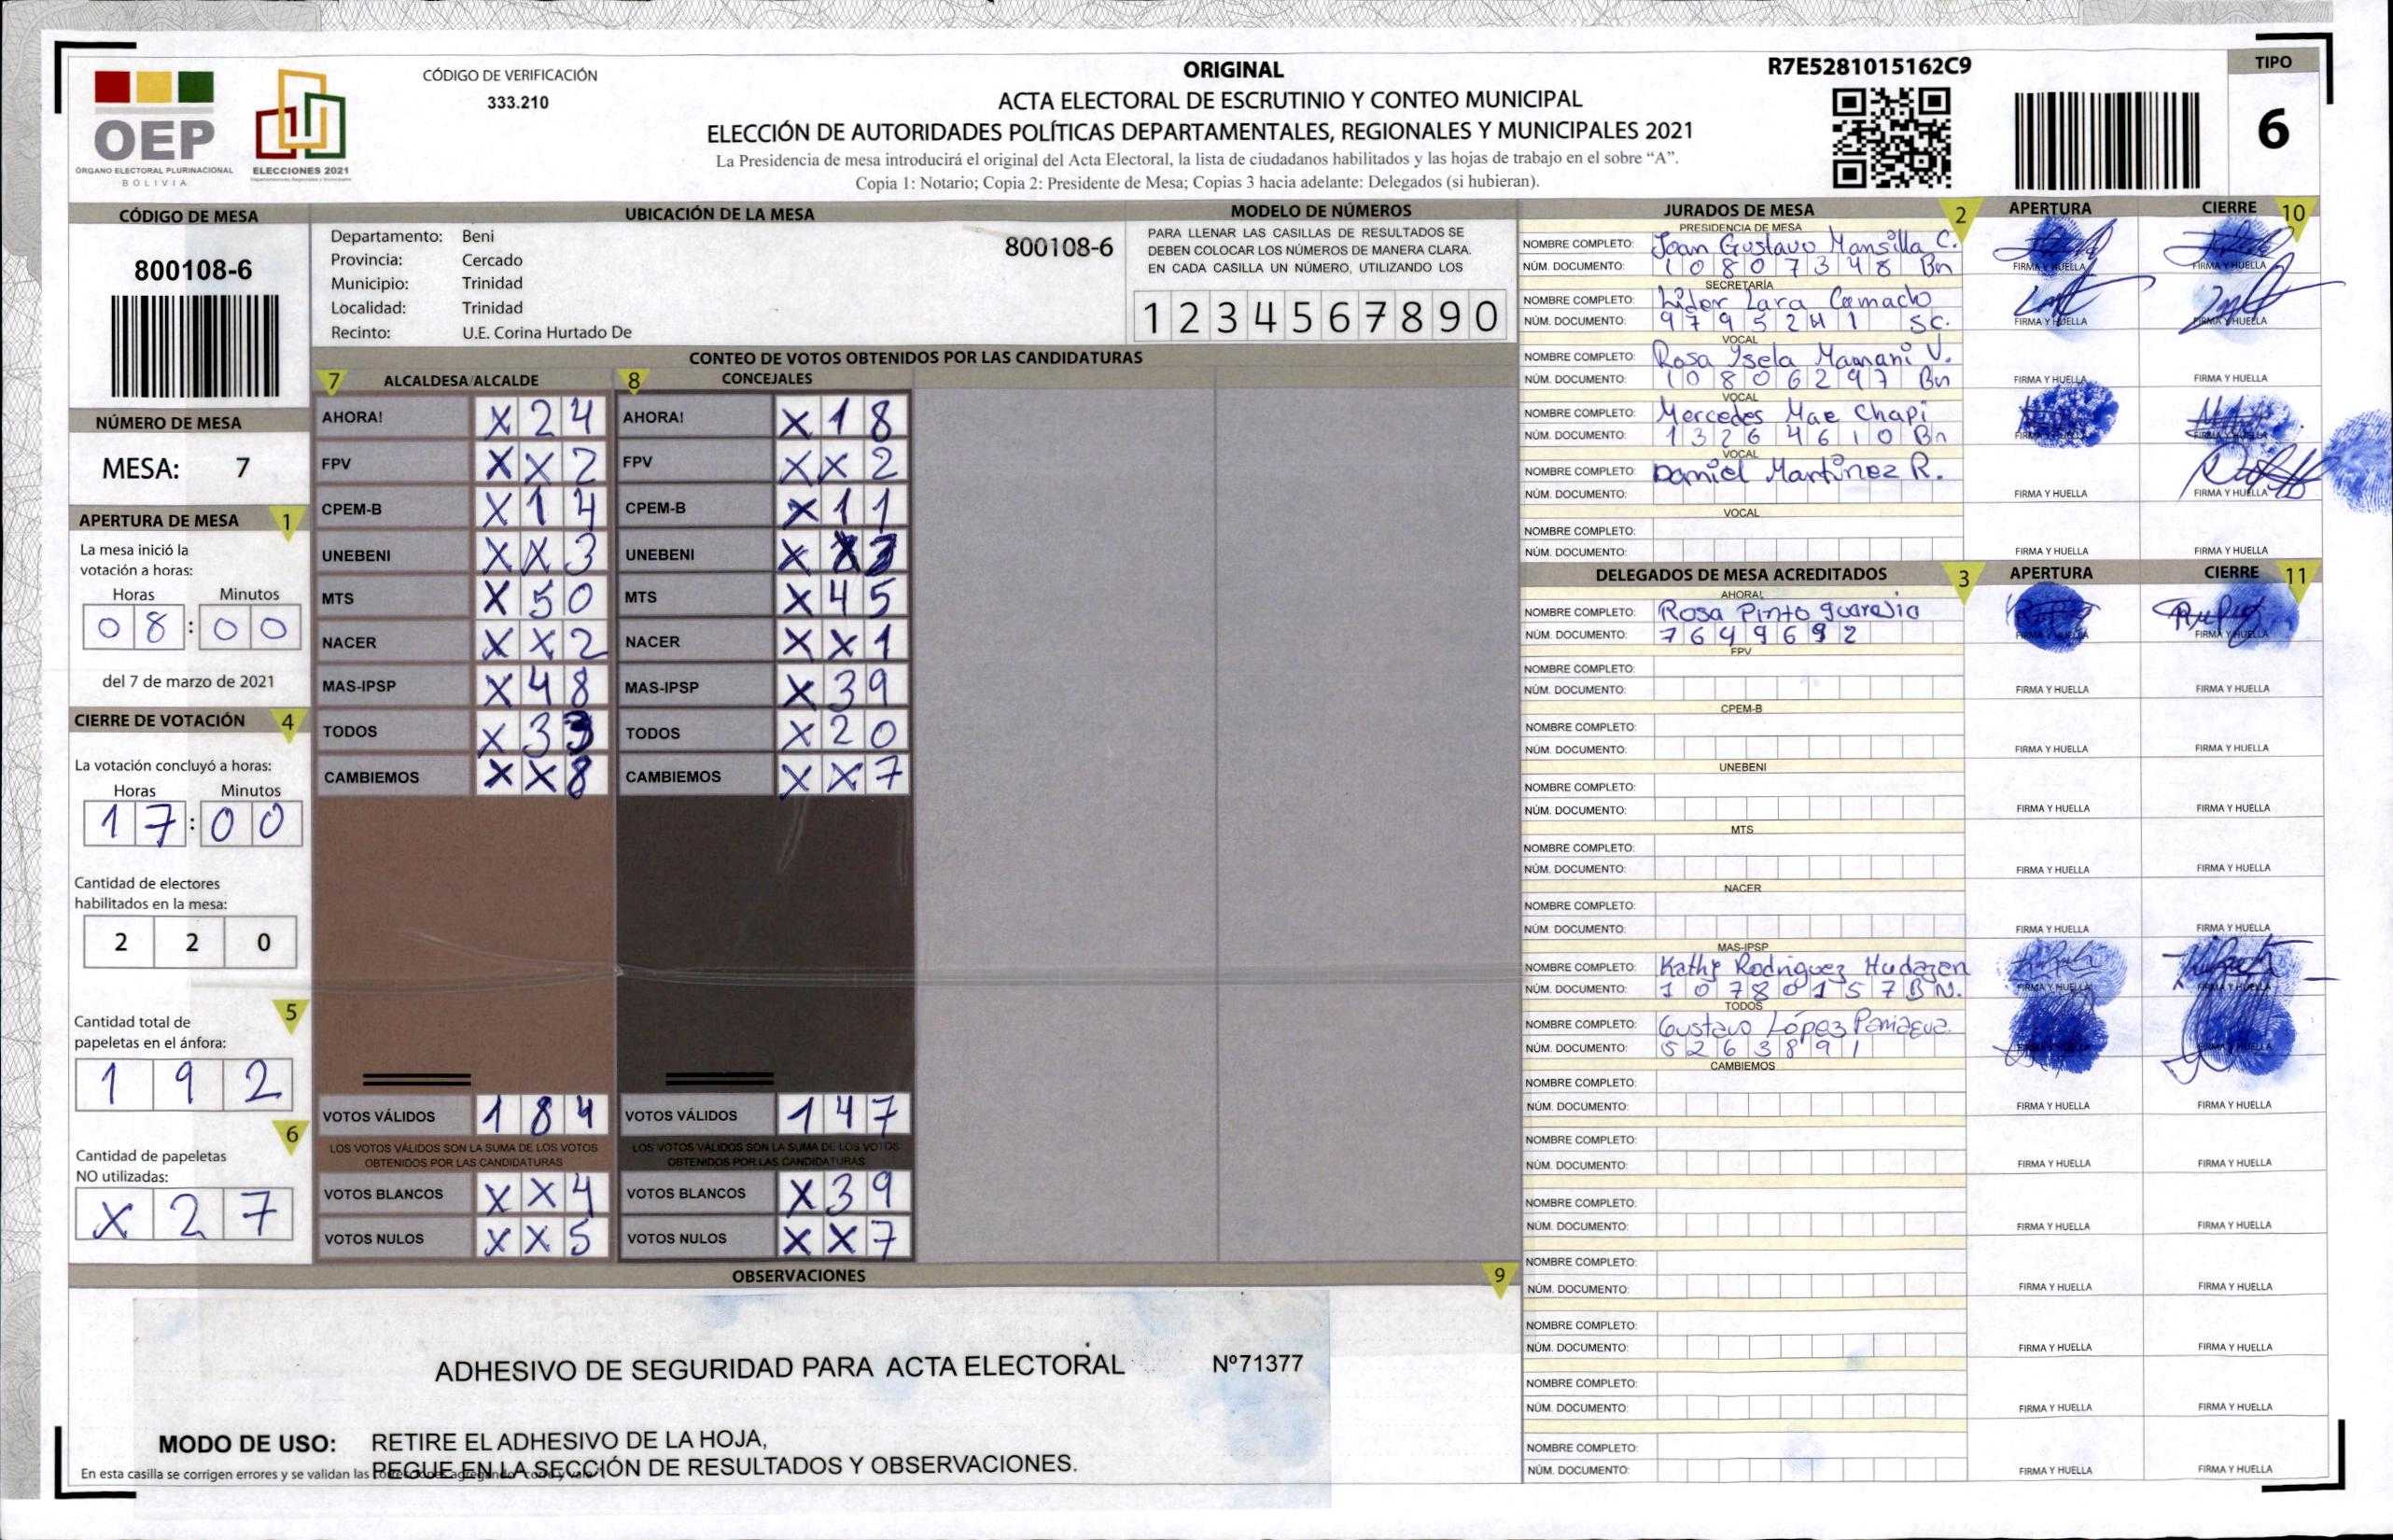 CÓDIGO DE VERIFICACIÓN
333.210
OEP
ÓRGANO ELECTORAL PLURINACIONAL
BOLIVIA
ELECCIONES 2021
ORIGINAL
ACTA ELECTORAL DE ESCRUTINIO Y CONTEO MUNICIPAL
ELECCIÓN DE AUTORIDADES POLÍTICAS DEPARTAMENTALES, REGIONALES Y MUNICIPALES 2021
La Presidencia de mesa introducirá el original del Acta Electoral, la lista de ciudadanos habilitados y las hojas de trabajo en el sobre “A”.
Copia 1: Notario; Copia 2: Presidente de Mesa; Copias 3 hacia adelante: Delegados (si hubieran).
R7E5281015162C9
TIPO
6
CÓDIGO DE MESA
800108-6
NÚMERO DE MESA
MESA: 7
APERTURA DE MESA 1
La mesa inició la
votación a horas:
Horas Minutos
08:00
del 7 de marzo de 2021
CIERRE DE VOTACIÓN 4
La votación concluyó a horas:
Horas Minutos
17:00
Cantidad de electores
habilitados en la mesa:
2 2 0
5
Cantidad total de
papeletas en el ánfora:
1 9 2
6
Cantidad de papeletas
NO utilizadas:
X 2 7
UBICACIÓN DE LA MESA
Departamento: Beni
Provincia: Cercado
Municipio: Trinidad
Localidad: Trinidad
Recinto: U.E. Corina Hurtado De
800108-6
MODELO DE NÚMEROS
PARA LLENAR LAS CASILLAS DE RESULTADOS SE
DEBEN COLOCAR LOS NÚMEROS DE MANERA CLARA.
EN CADA CASILLA UN NÚMERO, UTILIZANDO LOS
1 2 3 4 5 6 7 8 9 0
CONTEO DE VOTOS OBTENIDOS POR LAS CANDIDATURAS
7 ALCALDESA/ALCALDE 8 CONCEJALES
AHORA! X24 AHORA! X18
FPV XX2 FPV XX2
CPEM-B X14 CPEM-B X11
UNEBENI XX3 UNEBENI X
MTS X50 MTS X45
NACER XX2 NACER XX1
MAS-IPSP X48 MAS-IPSP X39
TODOS X33 TODOS X20
CAMBIEMOS XX8 CAMBIEMOS XX7
VOTOS VÁLIDOS 184 VOTOS VÁLIDOS 147
LOS VOTOS VÁLIDOS SON LA SUMA DE LOS VOTOS LOS VOTOS VÁLIDOS SON LA SUMA DE LOS VOTOS
OBTENIDOS POR LAS CANDIDATURAS OBTENIDOS POR LAS CANDIDATURAS
VOTOS BLANCOS XX4 VOTOS BLANCOS X39
VOTOS NULOS XX5 VOTOS NULOS XX7
OBSERVACIONES 9
ADHESIVO DE SEGURIDAD PARA ACTA ELECTORAL Nº71377
MODO DE USO: RETIRE EL ADHESIVO DE LA HOJA,
PEGUE EN LA SECCIÓN DE RESULTADOS Y OBSERVACIONES.
En esta casilla se corrigen errores y se validan las
JURADOS DE MESA 2 APERTURA CIERRE 10
PRESIDENCIA DE MESA
NOMBRE COMPLETO: Joan Gustavo Mansilla C.
NÚM. DOCUMENTO: 10807348 Bn FIRMA Y HUELLA FIRMA Y HUELLA
SECRETARÍA
NOMBRE COMPLETO: Lider Lara Camacho
NÚM. DOCUMENTO: 9795241 SC. FIRMA Y HUELLA FIRMA Y HUELLA
VOCAL
NOMBRE COMPLETO: Rosa Ysela Mamani V.
NÚM. DOCUMENTO: 10806297 Bn FIRMA Y HUELLA FIRMA Y HUELLA
VOCAL
NOMBRE COMPLETO: Mercedes Mae Chapi
NÚM. DOCUMENTO: 13264610 Bn FIRMA Y HUELLA FIRMA Y HUELLA
VOCAL
NOMBRE COMPLETO: Daniel Martinez R.
NÚM. DOCUMENTO: FIRMA Y HUELLA FIRMA Y HUELLA
VOCAL
NOMBRE COMPLETO:
NÚM. DOCUMENTO: FIRMA Y HUELLA FIRMA Y HUELLA
DELEGADOS DE MESA ACREDITADOS 3 APERTURA CIERRE 11
AHORA!
NOMBRE COMPLETO: Rosa Pinto
NÚM. DOCUMENTO: 7649692 FIRMA Y HUELLA FIRMA Y HUELLA
FPV
NOMBRE COMPLETO:
NÚM. DOCUMENTO: FIRMA Y HUELLA FIRMA Y HUELLA
CPEM-B
NOMBRE COMPLETO:
NÚM. DOCUMENTO: FIRMA Y HUELLA FIRMA Y HUELLA
UNEBENI
NOMBRE COMPLETO:
NÚM. DOCUMENTO: FIRMA Y HUELLA FIRMA Y HUELLA
MTS
NOMBRE COMPLETO:
NÚM. DOCUMENTO: FIRMA Y HUELLA FIRMA Y HUELLA
NACER
NOMBRE COMPLETO:
NÚM. DOCUMENTO: FIRMA Y HUELLA FIRMA Y HUELLA
MAS-IPSP
NOMBRE COMPLETO: Kathy Rodriguez
NÚM. DOCUMENTO: 10780157 BN. FIRMA Y HUELLA FIRMA Y HUELLA
TODOS
NOMBRE COMPLETO: Gustavo López
NÚM. DOCUMENTO: 5263891 FIRMA Y HUELLA
CAMBIEMOS
NOMBRE COMPLETO:
NÚM. DOCUMENTO: FIRMA Y HUELLA FIRMA Y HUELLA
NOMBRE COMPLETO:
NÚM. DOCUMENTO: FIRMA Y HUELLA FIRMA Y HUELLA
NOMBRE COMPLETO:
NÚM. DOCUMENTO: FIRMA Y HUELLA FIRMA Y HUELLA
NOMBRE COMPLETO:
NÚM. DOCUMENTO: FIRMA Y HUELLA FIRMA Y HUELLA
NOMBRE COMPLETO:
NÚM. DOCUMENTO: FIRMA Y HUELLA FIRMA Y HUELLA
NOMBRE COMPLETO:
NÚM. DOCUMENTO: FIRMA Y HUELLA FIRMA Y HUELLA
NOMBRE COMPLETO:
NÚM. DOCUMENTO: FIRMA Y HUELLA FIRMA Y HUELLA